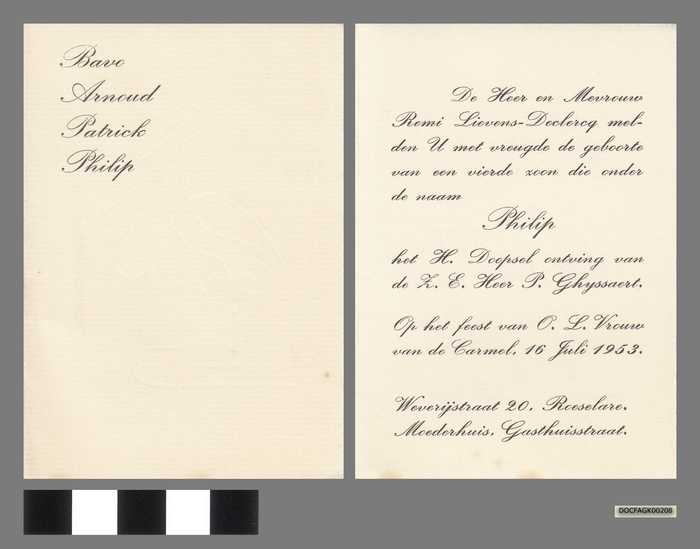 Bavo
Arnoud
Patrick
Philip
De Heer en Mevrouw
Remi Lievens-Declercq mel-
den U met vreugde de geboorte
van een vierde zoon die onder
de naam
Philip
het H. Doopsel ontving van
de Z. E. Heer P. Ghyssaert.
Op het feest van O. L. Vrouw
van de Carmel, 16 Juli 1953.
Weverijstraat 20, Roeselare.
Moederhuis, Gasthuisstraat.
DOCFAGK00208